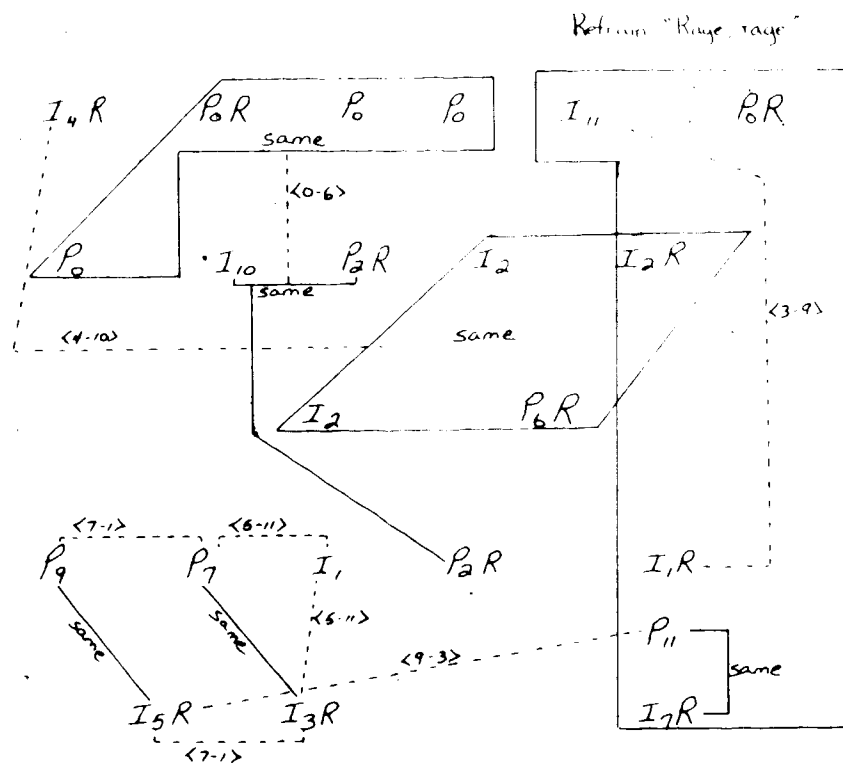 Refrain "Rage, rage"
I₄R P₀R P₀ P₀ I₁₁ P₀R
same
<0-6>
P₀ I₁₀ P₂R I₂ I₂R
same
<3-9>
<4-10> same
I₂ P₆R
<7-1> <6-11>
P₉ P₇ I₁ P₂R I₁R
same same <5-11>
P₁₁
<9-3> same
I₅R I₃R I₇R
<7-1>